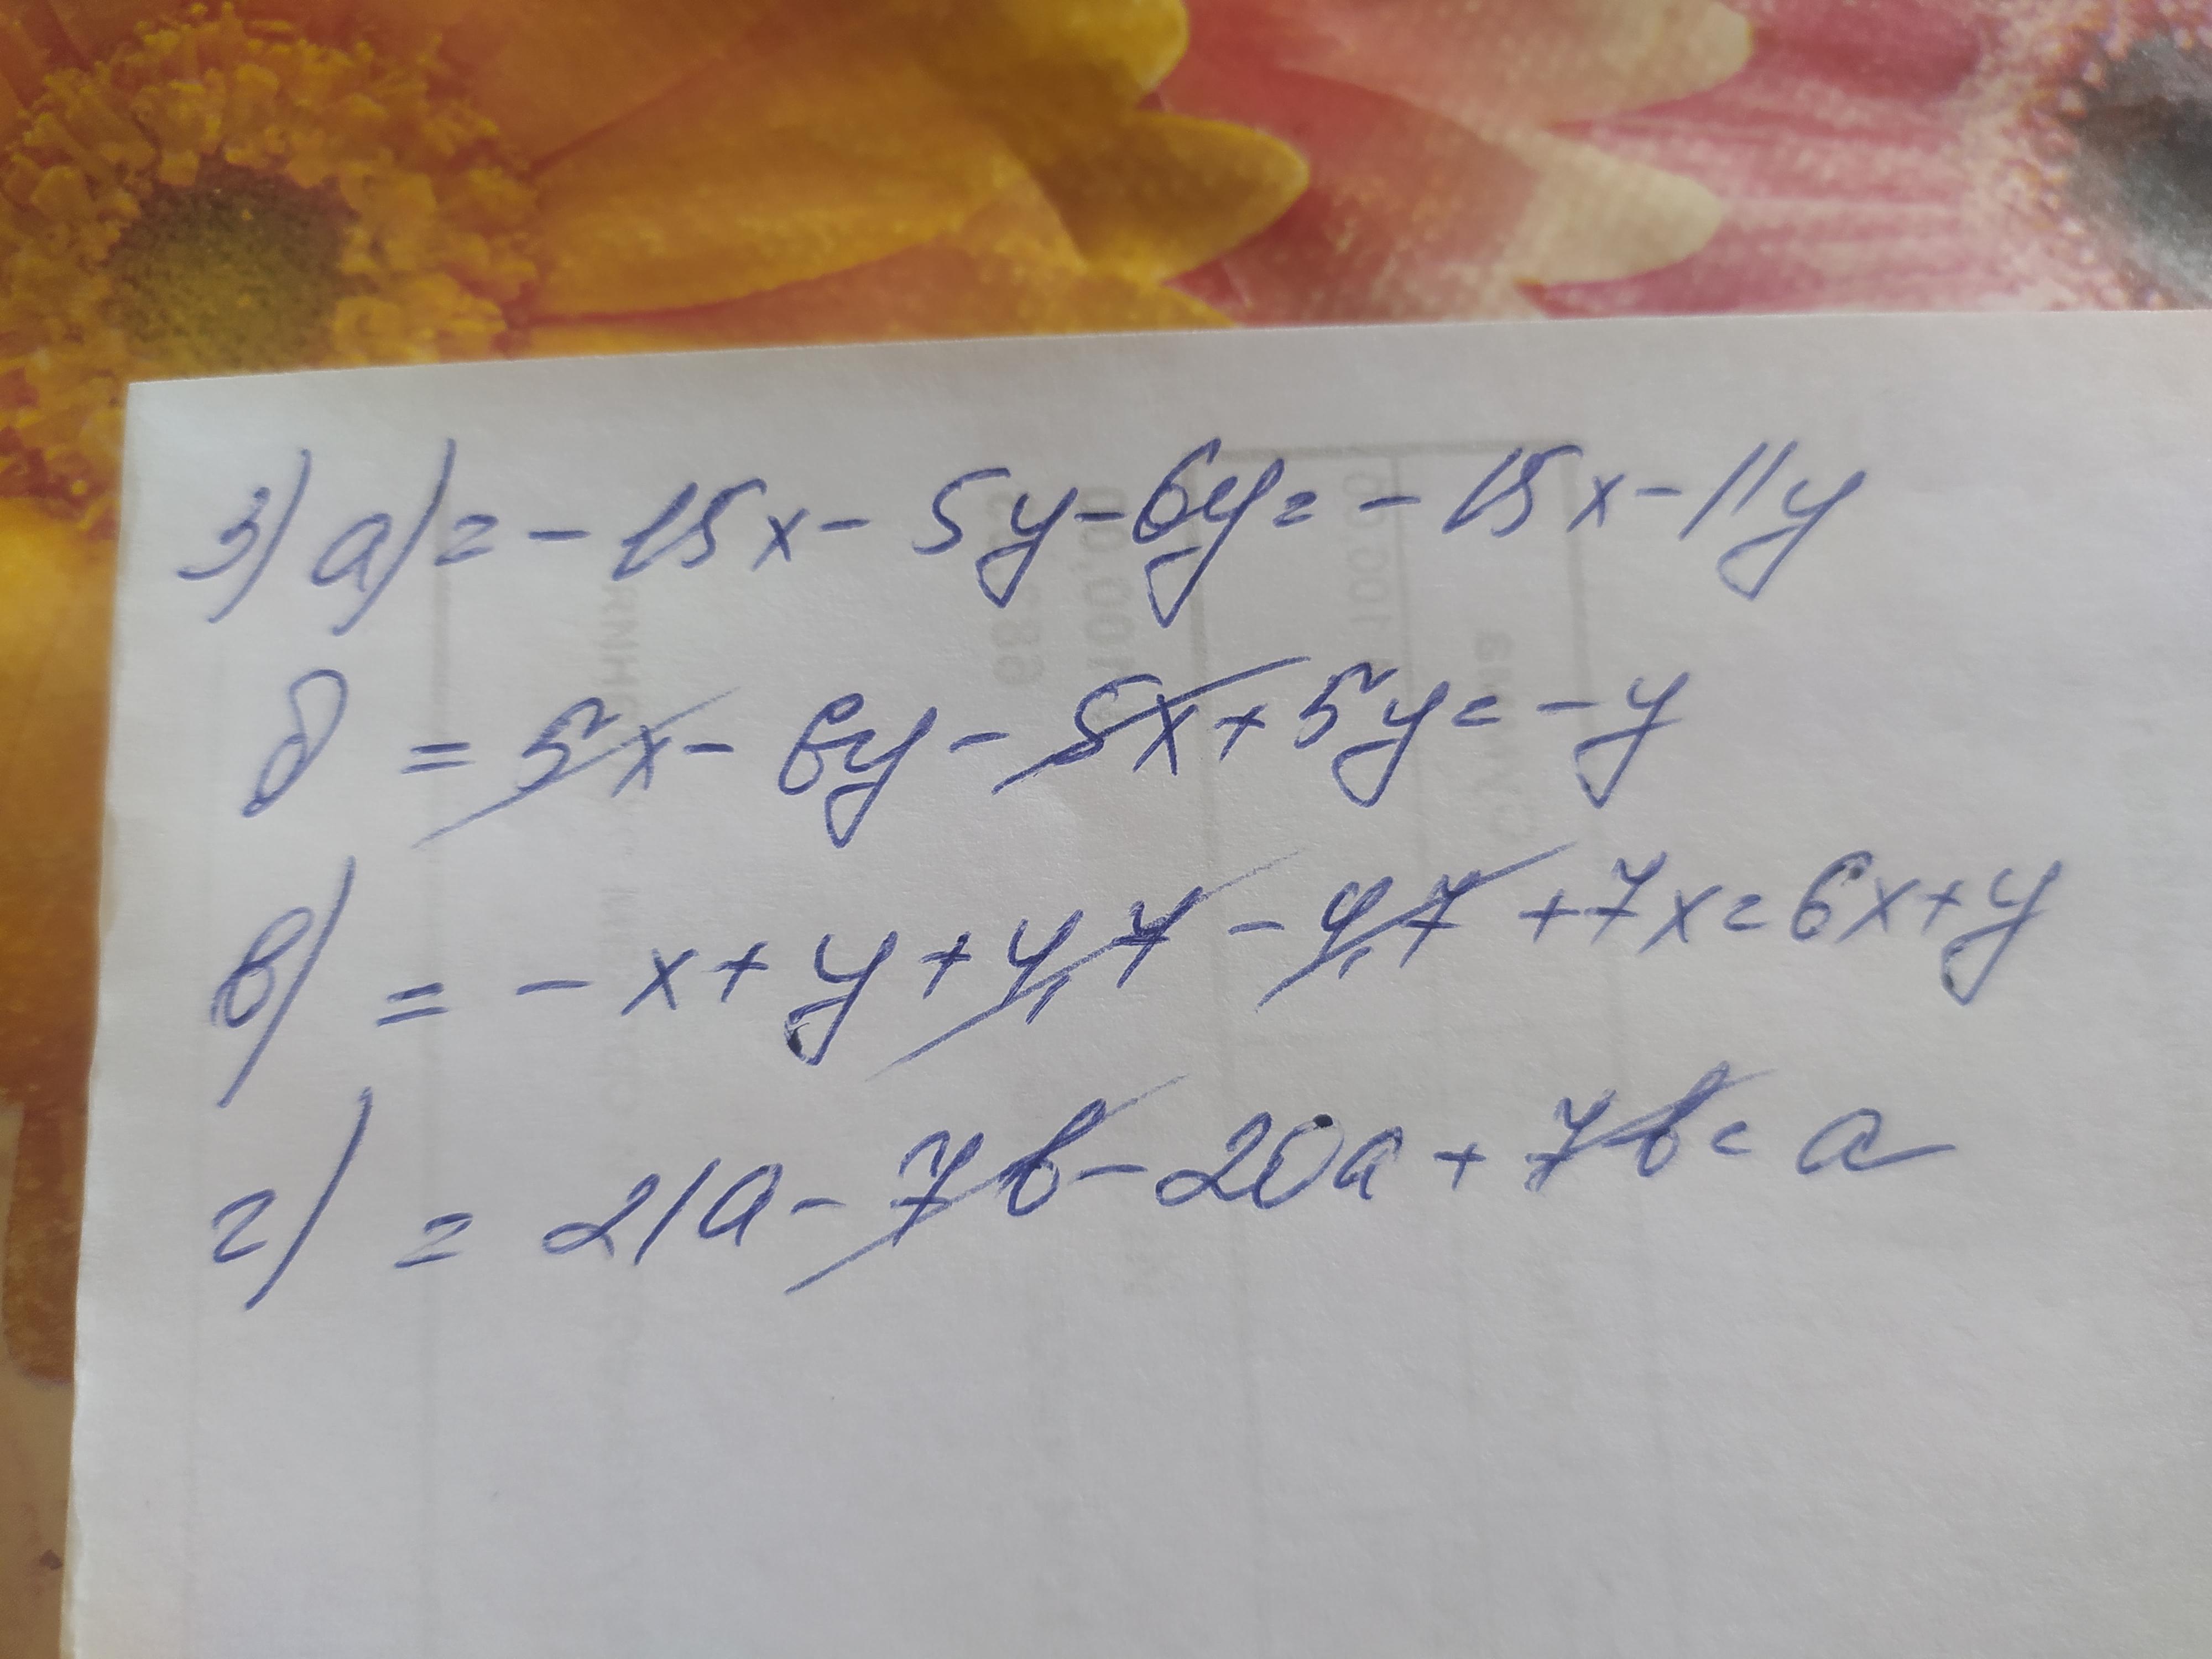 3) а) = - 15x - 5y - 6y = - 15x - 11y
б = 5x - 6y - 5x + 5y = - y
в) = - x + y + 4,7 - 4,7 + 7x = 6x + y
г) = 21a - 7b - 20a + 7b = a